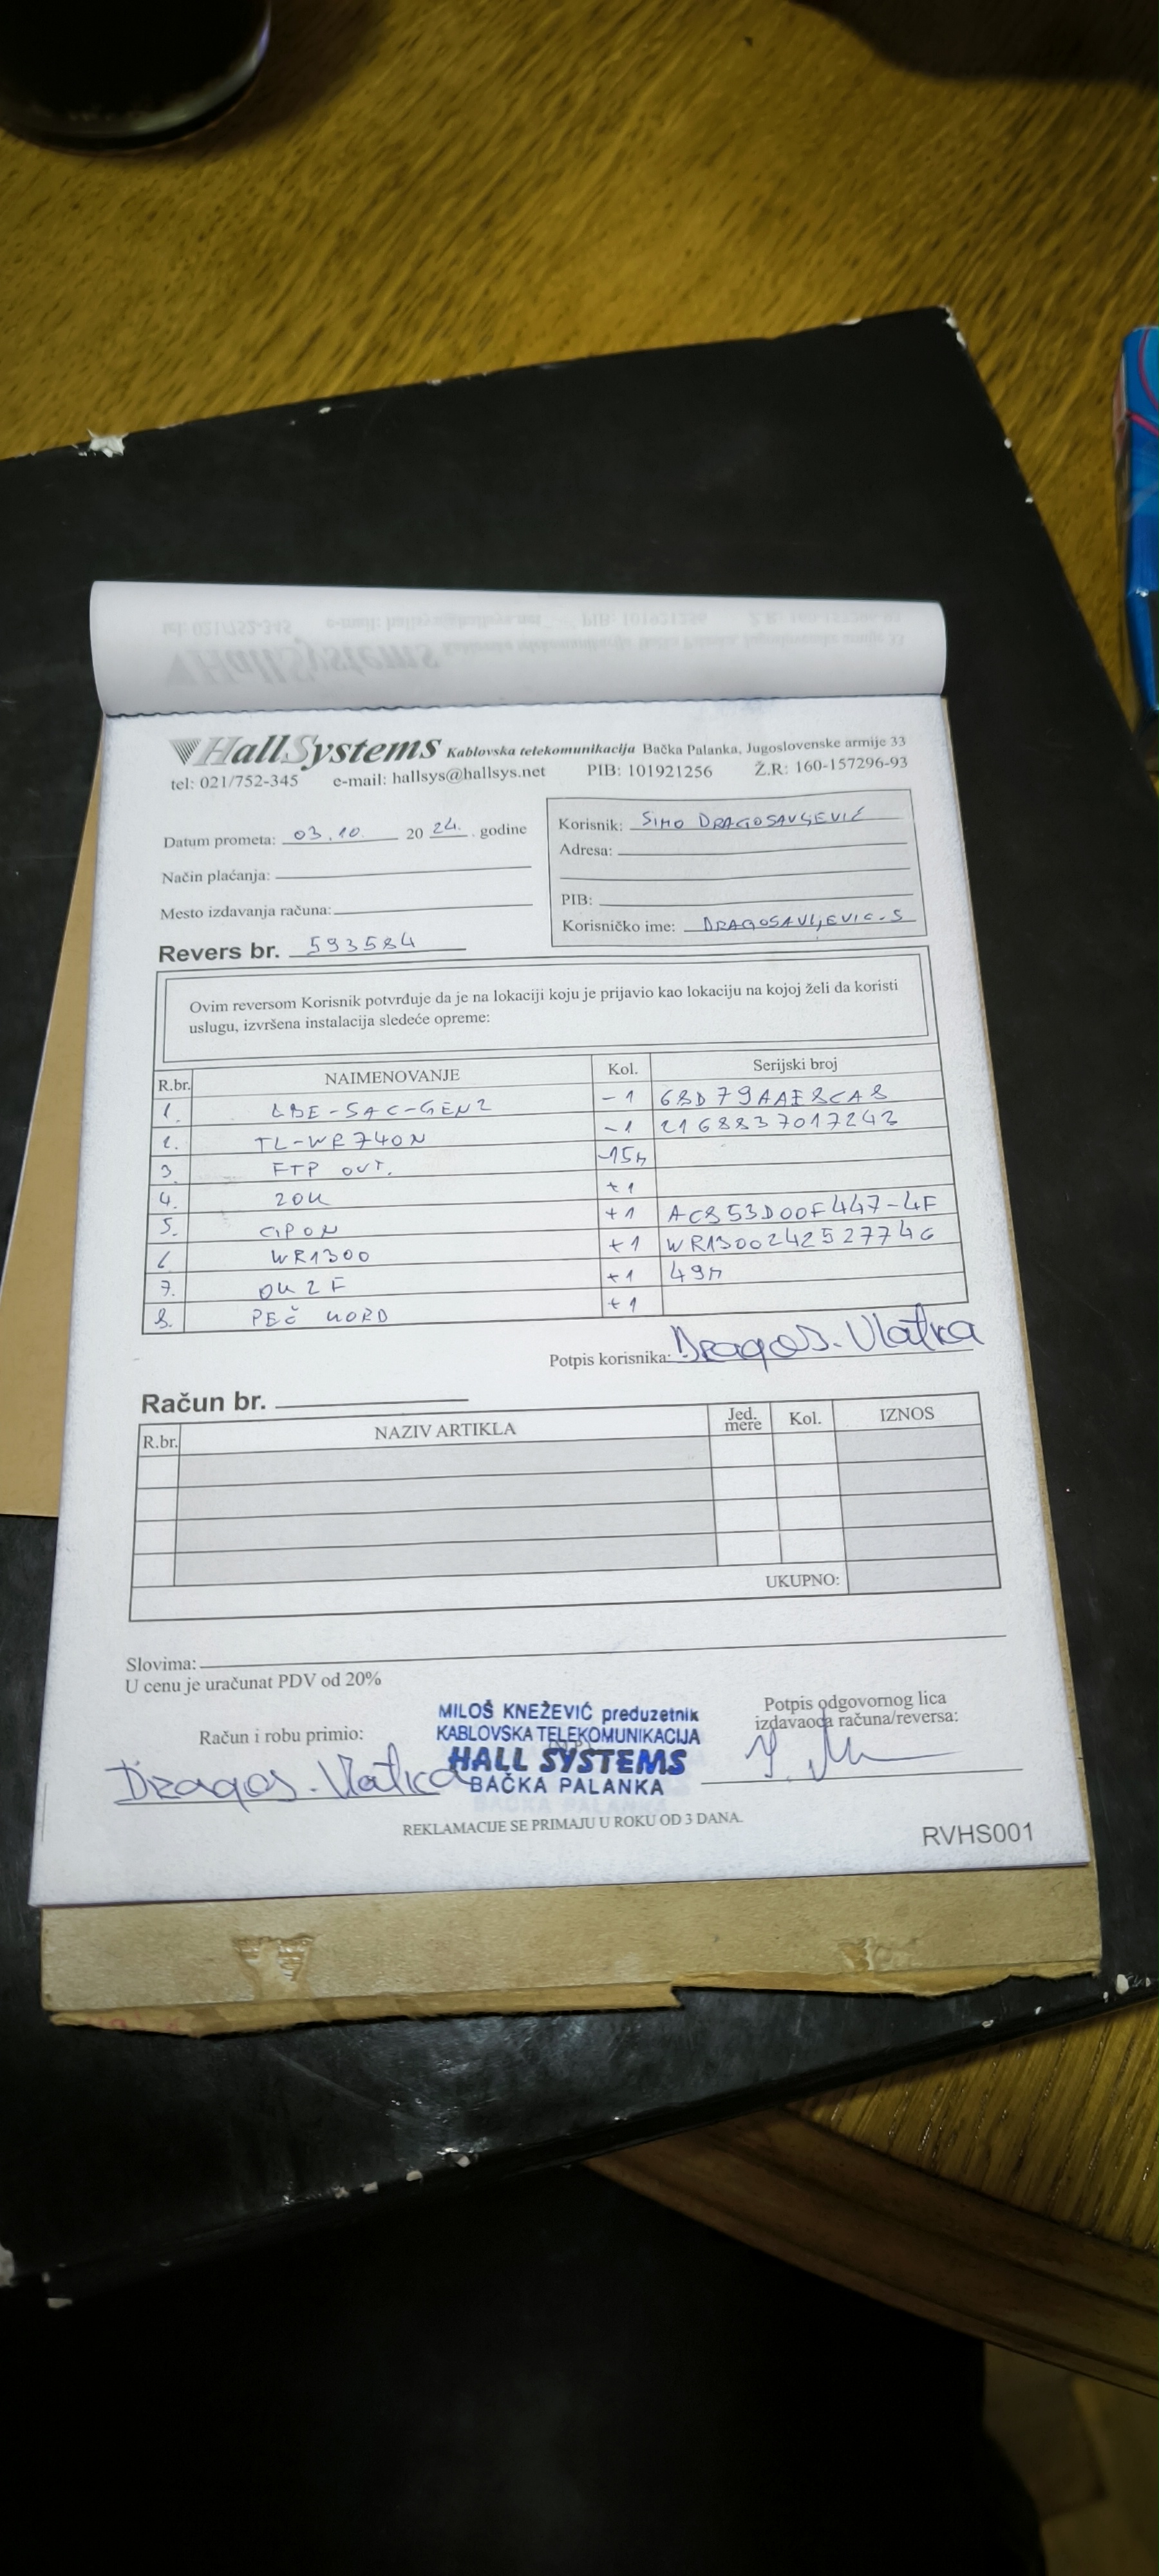 HallSystems Kablovska telekomunikacija Bačka Palanka, Jugoslovenske armije 33
tel: 021/752-345 e-mail: hallsys@hallsys.net PIB: 101921256 Ž.R: 160-157296-93
Datum prometa: 03.10. 2024. godine
Način plaćanja:
Mesto izdavanja računa:
Revers br. 593584
Korisnik: SIMO DRAGOSAVLJEVIĆ
Adresa:
PIB:
Korisničko ime: DRAGOSAVLJEVIC.S
Ovim reversom Korisnik potvrđuje da je na lokaciji koju je prijavio kao lokaciju na kojoj želi da koristi
uslugu, izvršena instalacija sledeće opreme:
R.br. NAIMENOVANJE Kol. Serijski broj
1. LBE-5AC-GEN2 -1 68D79AAE8CA8
2. TL-WR740N -1 2168837017243
3. FTP OUT. -15m
4. ZOK +1
5. GPON +1 AC853D00F447-4F
6 WR1300 +1 WR1300242527746
7. OK 2F +1 49m
8. PEČ KORD +1
Potpis korisnika: Dragos. Vlatka
Račun br.
R.br. NAZIV ARTIKLA Jed. mere Kol. IZNOS
UKUPNO:
Slovima:
U cenu je uračunat PDV od 20%
Račun i robu primio:
Dragos. Vlatka
MILOŠ KNEŽEVIĆ preduzetnik
KABLOVSKA TELEKOMUNIKACIJA
HALL SYSTEMS
BAČKA PALANKA
Potpis odgovornog lica
izdavaoca računa/reversa:
REKLAMACIJE SE PRIMAJU U ROKU OD 3 DANA.
RVHS001